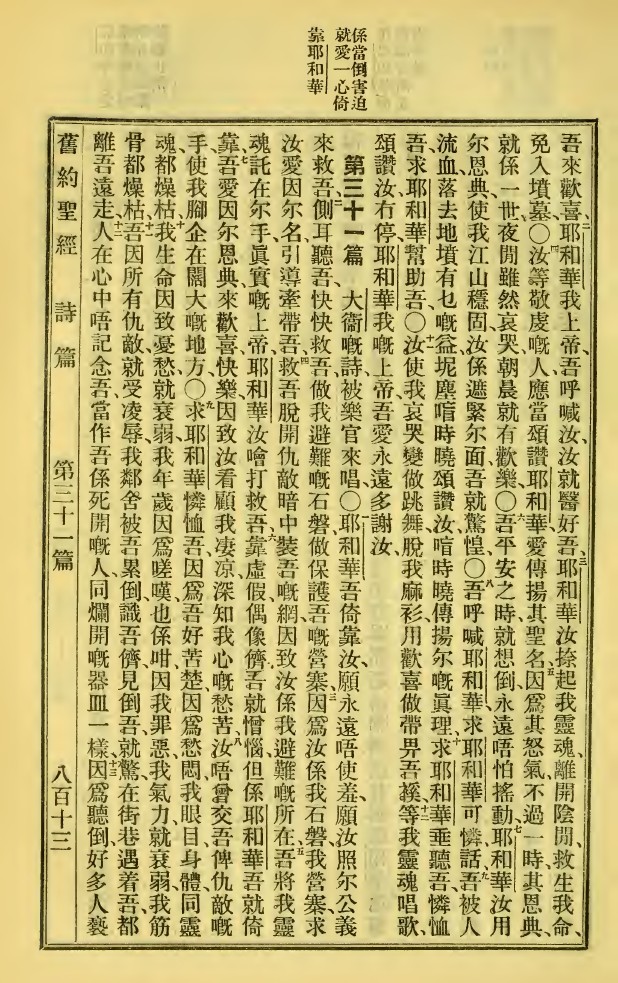 係當倒害迫
就愛一心倚
靠耶和華
吾來歡喜、耶和華我上帝、吾呼喊汝、汝就醫好吾、三耶和華汝捺起我靈魂、離開陰間、救生我命、
免入墳墓、〇四汝等敬虔嘅人應當頌讚耶和華、愛傳揚其聖名、五因爲其怒氣、不過一時、其恩典、
就係一世、夜間雖然哀哭、朝晨就有歡樂、〇六吾平安之時、就想倒永遠唔怕搖動、七耶和華汝用
尔恩典、使我江山穩固、汝係遮緊尔面、吾就驚惶、〇八吾呼喊耶和華、求耶和華可憐話、九吾被人
流血落去地墳有乜嘅益、坭塵喧時曉頌讚汝、喧時曉傳揚尔嘅眞理、十求耶和華垂聽吾、憐恤
吾、求耶和華幫助吾、〇十一汝使我哀哭變做跳舞、脫我麻衫、用歡喜做帶畀吾䙆、十二等我靈魂唱歌、
頌讚汝冇停、耶和華我嘅上帝、吾愛永遠多謝汝、
第三十一篇 大衞嘅詩、被樂官來唱、〇耶和華吾倚靠汝、願永遠唔使羞、願汝照尔公義
來救吾、二側耳聽吾、快快救吾、做我避難嘅石磐、做保護吾嘅營寨、三因爲汝係我石磐、我營寨、求
汝愛因尔名引導牽帶吾、四救吾脫開仇敵暗中裝吾嘅網、因致汝係我避難嘅所在、五吾將我靈
魂、託在尔手、眞實嘅上帝耶和華、汝噲打救吾、六靠虛假偶像儕、吾就憎惱、但係耶和華吾就倚
靠、七吾愛因尔恩典來歡喜快樂、因致汝看顧我凄凉、深知我心嘅愁苦、八汝唔曾交吾俾仇敵嘅
手、使我腳企在闊大嘅地方、〇九求耶和華憐恤吾、因爲吾好苦楚、因爲愁悶、我眼目身體同靈
魂都燥枯、十我生命因致憂愁就衰弱、我年歲因爲嗟嘆也係咁、因我罪惡、我氣力就衰弱、我筋
骨都燥枯、十一吾因所有仇敵、就受凌辱、我鄰舍被吾累倒、識吾儕見倒吾就驚、在街巷遇着吾、都
離吾遠走、十二人在心中唔記念吾、當作吾係死開嘅人、同爛開嘅器皿一樣、十三因爲聽倒好多人褻
舊約聖經 詩篇 第三十一篇 八百十三